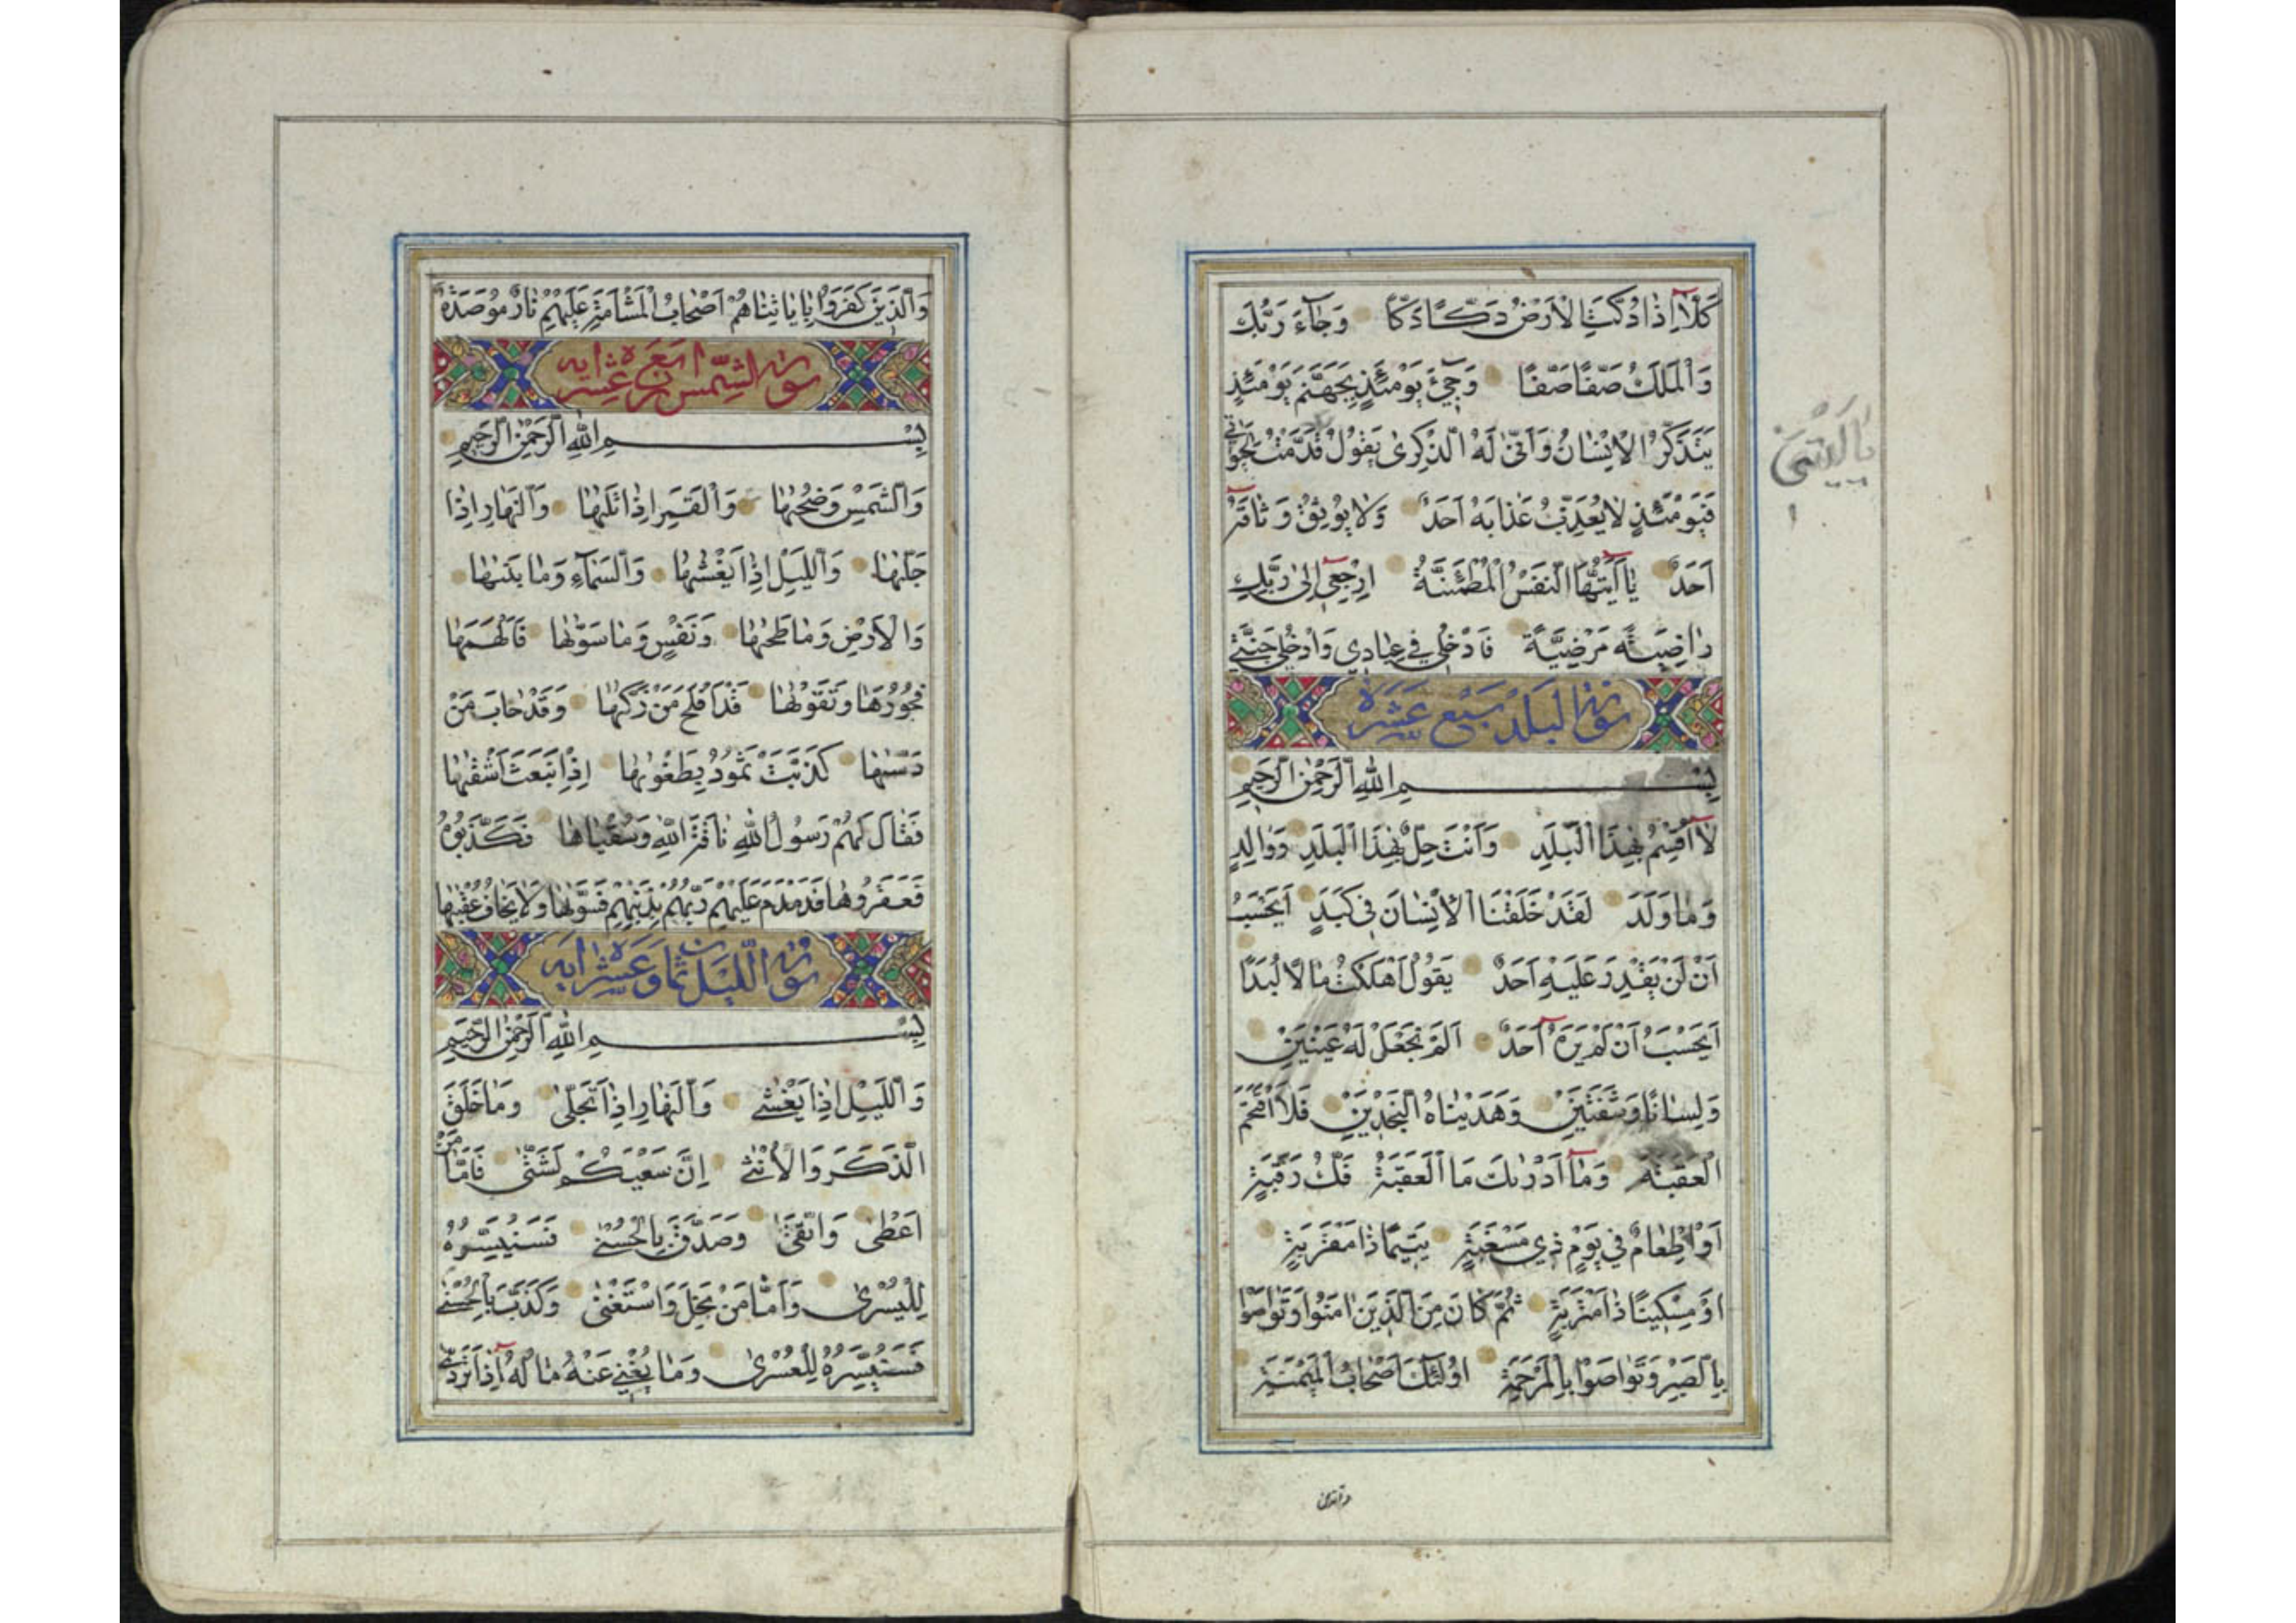 كَلَّآ اِذٰا دُكَّتِ الْاَرْضُ دَكًّا دَكًّا وَجٰآءَ رَبُّكَ
وَالْمَلَكُ صَفًّا صَفًّا وَجِيٓءَ يَوْمَئِذٍ بِجَهَنَّمَ يَوْمَئِذٍ
يَتَذَكَّرُ الْاِنْسٰانُ وَاَنّٰى لَهُ الذِّكْرىٰ يَقُولُ قَدَّمْتُ لِحَيٰوتي
فَيَوْمَئِذٍ لٰا يُعَذِّبُ عَذٰابَهُ اَحَدٌ وَلٰا يُوثِقُ وَثٰاقَهُٓ
اَحَدٌ يٰآ اَيَّتُهَا النَّفْسُ الْمُطْمَئِنَّةُ ارْجِعيٓ اِلىٰ رَبِّكِ
رٰاضِيَةً مَرْضِيَّةً فَادْخُلي في عِبٰادي وَادْخُلي جَنَّتي
سورة البلد عشره
بِسْمِ اللّٰهِ الرَّحْمٰنِ الرَّحيمِ
لٰآ اُقْسِمُ بِهٰذَا الْبَلَدِ وَاَنْتَ حِلٌّ بِهٰذَا الْبَلَدِ وَوٰالِدٍ
وَمٰا وَلَدَ لَقَدْ خَلَقْنَا الْاِنْسٰانَ في كَبَدٍ اَيَحْسَبُ
اَنْ لَنْ يَقْدِرَ عَلَيْهِ اَحَدٌ يَقُولُ اَهْلَكْتُ مٰالًا لُبَدًا
اَيَحْسَبُ اَنْ لَمْ يَرَهُٓ اَحَدٌ اَلَمْ نَجْعَلْ لَهُ عَيْنَيْنِ
وَلِسٰانًا وَشَفَتَيْنِ وَهَدَيْنٰاهُ النَّجْدَيْنِ فَلَا اقْتَحَمَ
الْعَقَبَةَ وَمٰآ اَدْرٰىكَ مَا الْعَقَبَةُ فَكُّ رَقَبَةٍ
اَوْ اِطْعٰامٌ في يَوْمٍ ذي مَسْغَبَةٍ يَتيمًا ذٰا مَقْرَبَةٍ
اَوْ مِسْكينًا ذٰا مَتْرَبَةٍ ثُمَّ كٰانَ مِنَ الَّذينَ اٰمَنُوا وَتَوٰاصَوْا
بِالصَّبْرِ وَتَوٰاصَوْا بِالْمَرْحَمَةِ اُولٰئِكَ اَصْحٰابُ الْمَيْمَنَةِ
والذين
يٰا لَيْتَني
وَالَّذينَ كَفَرُوا بِاٰيٰاتِنٰا هُمْ اَصْحٰابُ الْمَشْاَمَةِ عَلَيْهِمْ نٰارٌ مُوصَدَةٌ
سورة الشمس عشر ايه
بِسْمِ اللّٰهِ الرَّحْمٰنِ الرَّحيمِ
وَالشَّمْسِ وَضُحٰيهٰا وَالْقَمَرِ اِذٰا تَلٰيهٰا وَالنَّهٰارِ اِذٰا
جَلّٰيهٰا وَاللَّيْلِ اِذٰا يَغْشٰيهٰا وَالسَّمٰآءِ وَمٰا بَنٰيهٰا
وَالْاَرْضِ وَمٰا طَحٰيهٰا وَنَفْسٍ وَمٰا سَوّٰيهٰا فَاَلْهَمَهٰا
فُجُورَهٰا وَتَقْوٰيهٰا قَدْ اَفْلَحَ مَنْ زَكّٰيهٰا وَقَدْ خٰابَ مَنْ
دَسّٰيهٰا كَذَّبَتْ ثَمُودُ بِطَغْوٰيهٰا اِذِ انْبَعَثَ اَشْقٰيهٰا
فَقٰالَ لَهُمْ رَسُولُ اللّٰهِ نٰاقَةَ اللّٰهِ وَسُقْيٰاهٰا فَكَذَّبُوهُ
فَعَقَرُوهٰا فَدَمْدَمَ عَلَيْهِمْ رَبُّهُمْ بِذَنْبِهِمْ فَسَوّٰيهٰا وَلٰا يَخٰافُ عُقْبٰيهٰا
سورة الليل ثمان وعشر ايه
بِسْمِ اللّٰهِ الرَّحْمٰنِ الرَّحيمِ
وَاللَّيْلِ اِذٰا يَغْشىٰ وَالنَّهٰارِ اِذٰا تَجَلّىٰ وَمٰا خَلَقَ
الذَّكَرَ وَالْاُنْثىٰ اِنَّ سَعْيَكُمْ لَشَتّىٰ فَاَمّٰا مَنْ
اَعْطىٰ وَاتَّقىٰ وَصَدَّقَ بِالْحُسْنىٰ فَسَنُيَسِّرُهُ
لِلْيُسْرىٰ وَاَمّٰا مَنْ بَخِلَ وَاسْتَغْنىٰ وَكَذَّبَ بِالْحُسْنىٰ
فَسَنُيَسِّرُهُ لِلْعُسْرىٰ وَمٰا يُغْني عَنْهُ مٰالُهُٓ اِذٰا تَرَدّىٰ